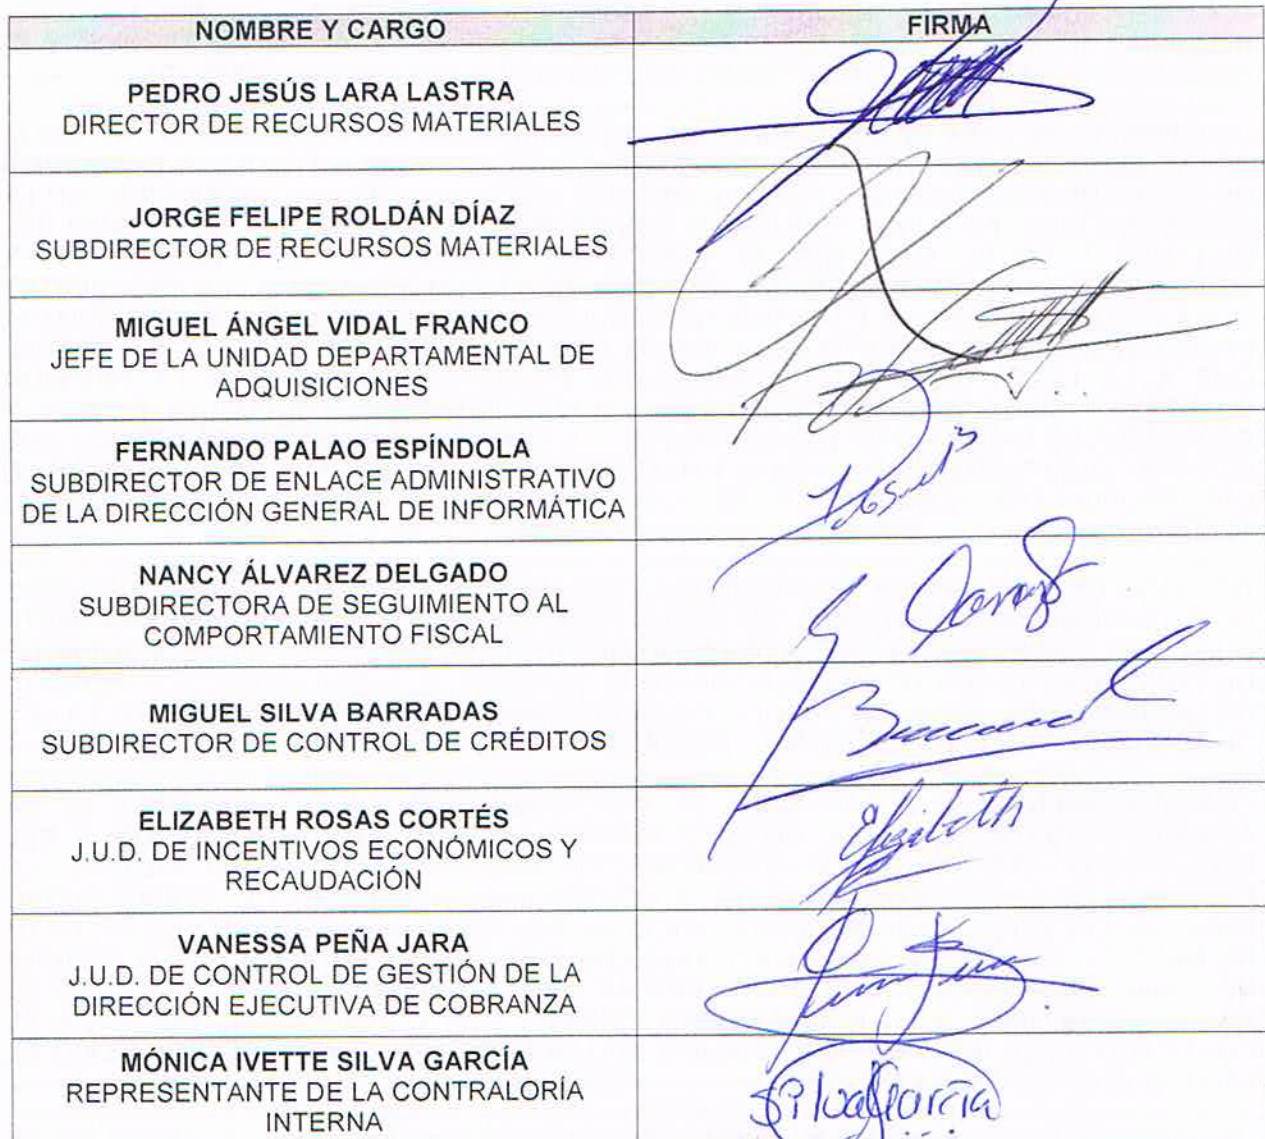 NOMBRE Y CARGO FIRMA
PEDRO JESÚS LARA LASTRA
DIRECTOR DE RECURSOS MATERIALES
JORGE FELIPE ROLDÁN DÍAZ
SUBDIRECTOR DE RECURSOS MATERIALES
MIGUEL ÁNGEL VIDAL FRANCO
JEFE DE LA UNIDAD DEPARTAMENTAL DE
ADQUISICIONES
FERNANDO PALAO ESPÍNDOLA
SUBDIRECTOR DE ENLACE ADMINISTRATIVO
DE LA DIRECCIÓN GENERAL DE INFORMÁTICA
NANCY ÁLVAREZ DELGADO
SUBDIRECTORA DE SEGUIMIENTO AL
COMPORTAMIENTO FISCAL
MIGUEL SILVA BARRADAS
SUBDIRECTOR DE CONTROL DE CRÉDITOS
ELIZABETH ROSAS CORTÉS
J.U.D. DE INCENTIVOS ECONÓMICOS Y
RECAUDACIÓN
Elizabeth
VANESSA PEÑA JARA
J.U.D. DE CONTROL DE GESTIÓN DE LA
DIRECCIÓN EJECUTIVA DE COBRANZA
MÓNICA IVETTE SILVA GARCÍA
REPRESENTANTE DE LA CONTRALORÍA
INTERNA
Silva García